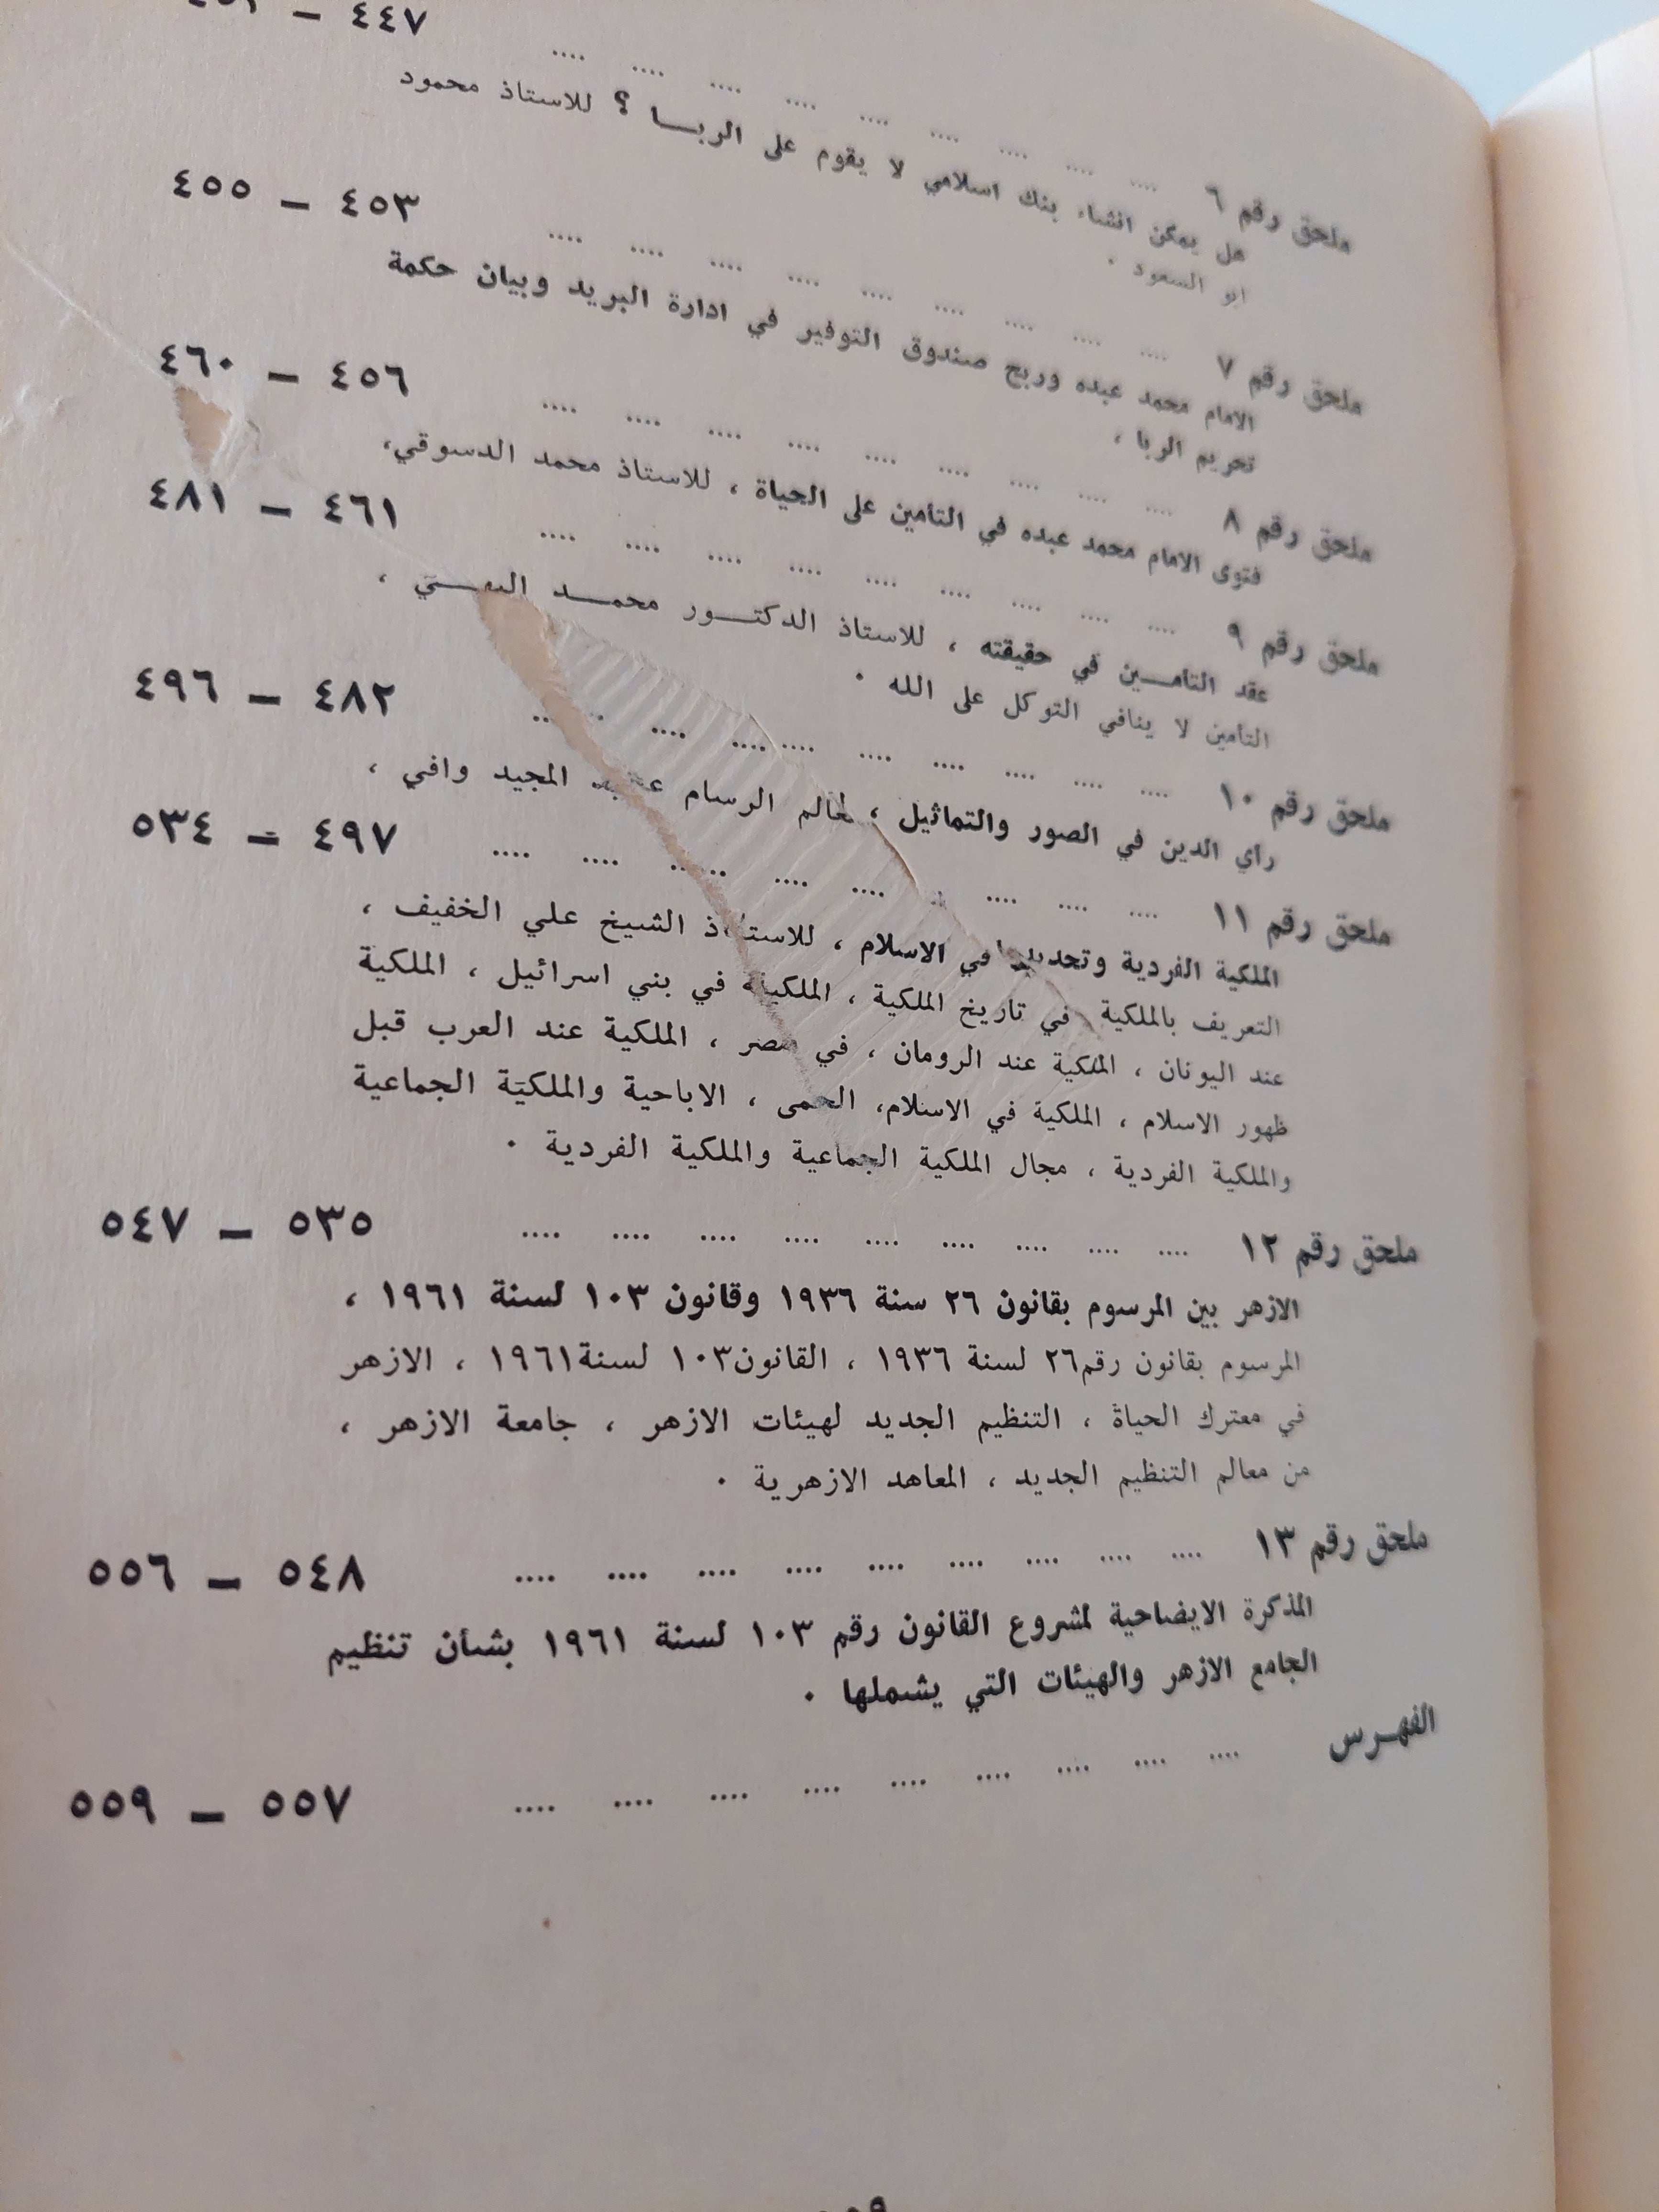 ملحق رقم ٦ .... .... .... .... .... .... .... .... .... ٤٤٧ –
هل يمكن انشاء بنك اسلامي لا يقوم على الربـا ؟ للاستاذ محمود
ابو السعود .
ملحق رقم ٧ .... .... .... .... .... .... .... .... .... ٤٥٣ – ٤٥٥
الامام محمد عبده وربح صندوق التوفير في ادارة البريد وبيان حكمة
تحريم الربا ،
ملحق رقم ٨ .... .... .... .... .... .... .... .... .... ٤٥٦ – ٤٦٠
فتوى الامام محمد عبده في التامين على الحياة ، للاستاذ محمد الدسوقي،
ملحق رقم ٩ .... .... .... .... .... .... .... .... .... ٤٦١ – ٤٨١
عقد التامـين في حقيقته ، للاستاذ الدكتـور محمـد البهـي ،
التأمين لا ينافي التوكل على الله .
ملحق رقم ١٠ .... .... .... .... .... .... .... .... .... ٤٨٢ – ٤٩٦
راي الدين في الصور والتماثيل ، للعالم الرسام عبد المجيد وافي ،
ملحق رقم ١١ .... .... .... .... .... .... .... .... .... ٤٩٧ – ٥٣٤
الملكية الفردية وتحديدها في الاسلام ، للاستاذ الشيخ علي الخفيف ،
التعريف بالملكية في تاريخ الملكية ، الملكية في بني اسرائيل ، الملكية
عند اليونان ، الملكية عند الرومان ، في مصر ، الملكية عند العرب قبل
ظهور الاسلام ، الملكية في الاسلام، الحمى ، الاباحية والملكية الجماعية
والملكية الفردية ، مجال الملكية الجماعية والملكية الفردية .
ملحق رقم ١٢ .... .... .... .... .... .... .... .... .... ٥٣٥ – ٥٤٧
الازهر بين المرسوم بقانون ٢٦ سنة ١٩٣٦ وقانون ١٠٣ لسنة ١٩٦١ ،
المرسوم بقانون رقم٢٦ لسنة ١٩٣٦ ، القانون١٠٣ لسنة١٩٦١ ، الازهر
في معترك الحياة ، التنظيم الجديد لهيئات الازهر ، جامعة الازهر ،
من معالم التنظيم الجديد ، المعاهد الازهرية .
ملحق رقم ١٣ .... .... .... .... .... .... .... .... .... ٥٤٨ – ٥٥٦
المذكرة الايضاحية لمشروع القانون رقم ١٠٣ لسنة ١٩٦١ بشأن تنظيم
الجامع الازهر والهيئات التي يشملها .
الفهـرس .... .... .... .... .... .... .... .... .... ٥٥٧ – ٥٥٩